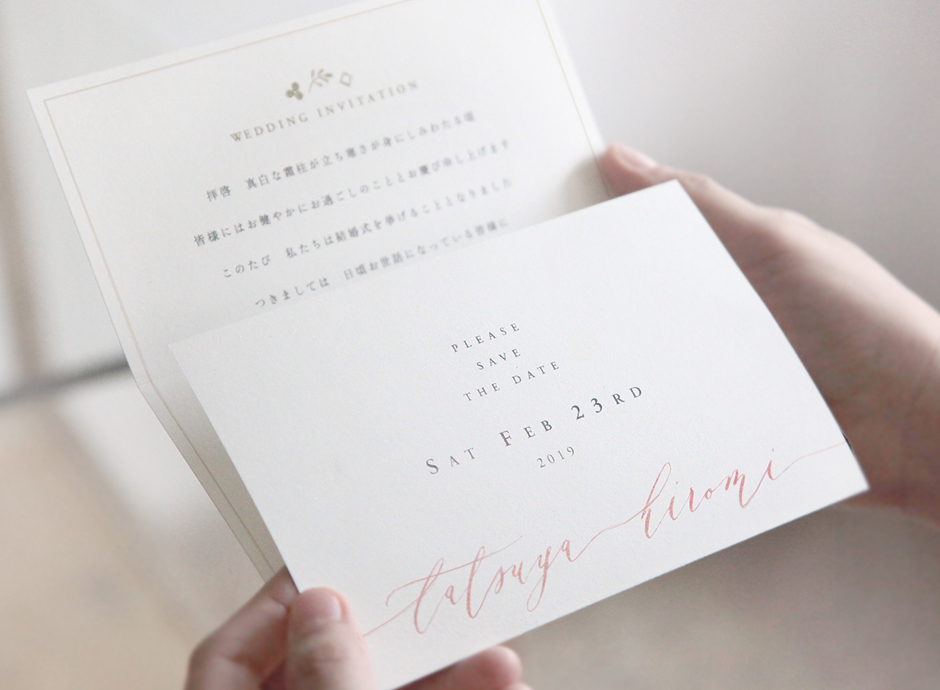 WEDDING INVITATION
拝啓　真白な霜柱が立ち寒さが身にしみわたる頃
皆様にはお健やかにお過ごしのこととお慶び申し上げます
このたび　私たちは結婚式を挙げることとなりました
つきましては　日頃お世話になっている皆様に
PLEASE
SAVE
THE DATE
SAT FEB 23RD
2019
tatsuya hiromi